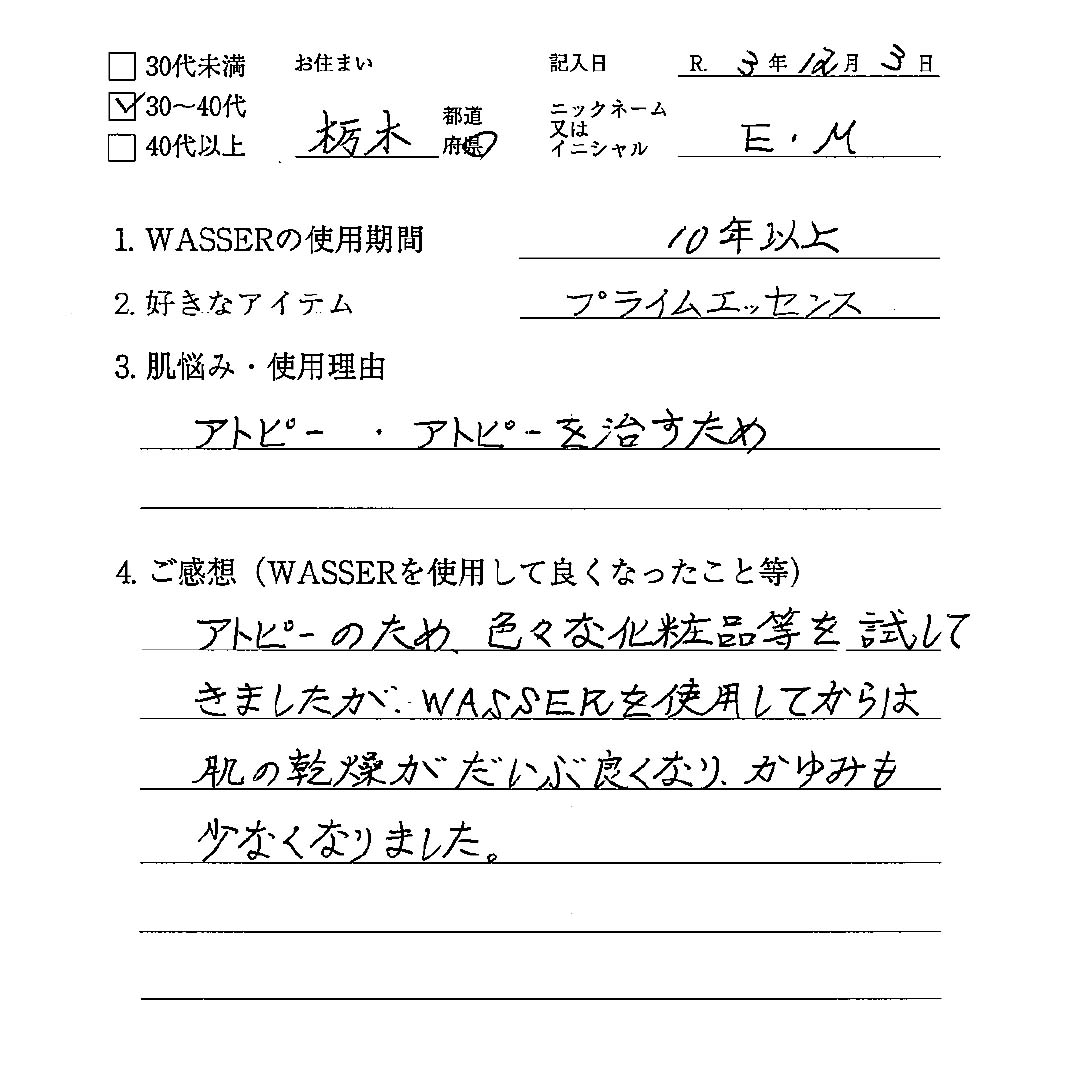 30代未満 お住まい 記入日 R. 3年12月3日
30〜40代 栃木 都道府県 ニックネーム
又は
40代以上 イニシャル E・M
1. WASSERの使用期間 10年以上
2. 好きなアイテム プライムエッセンス
3. 肌悩み・使用理由
アトピー ・ アトピーを治すため
4. ご感想(WASSERを使用して良くなったこと等)
アトピーのため、色々な化粧品等を試して
きましたが、WASSERを使用してからは
肌の乾燥がだいぶ良くなり、かゆみも
少なくなりました。